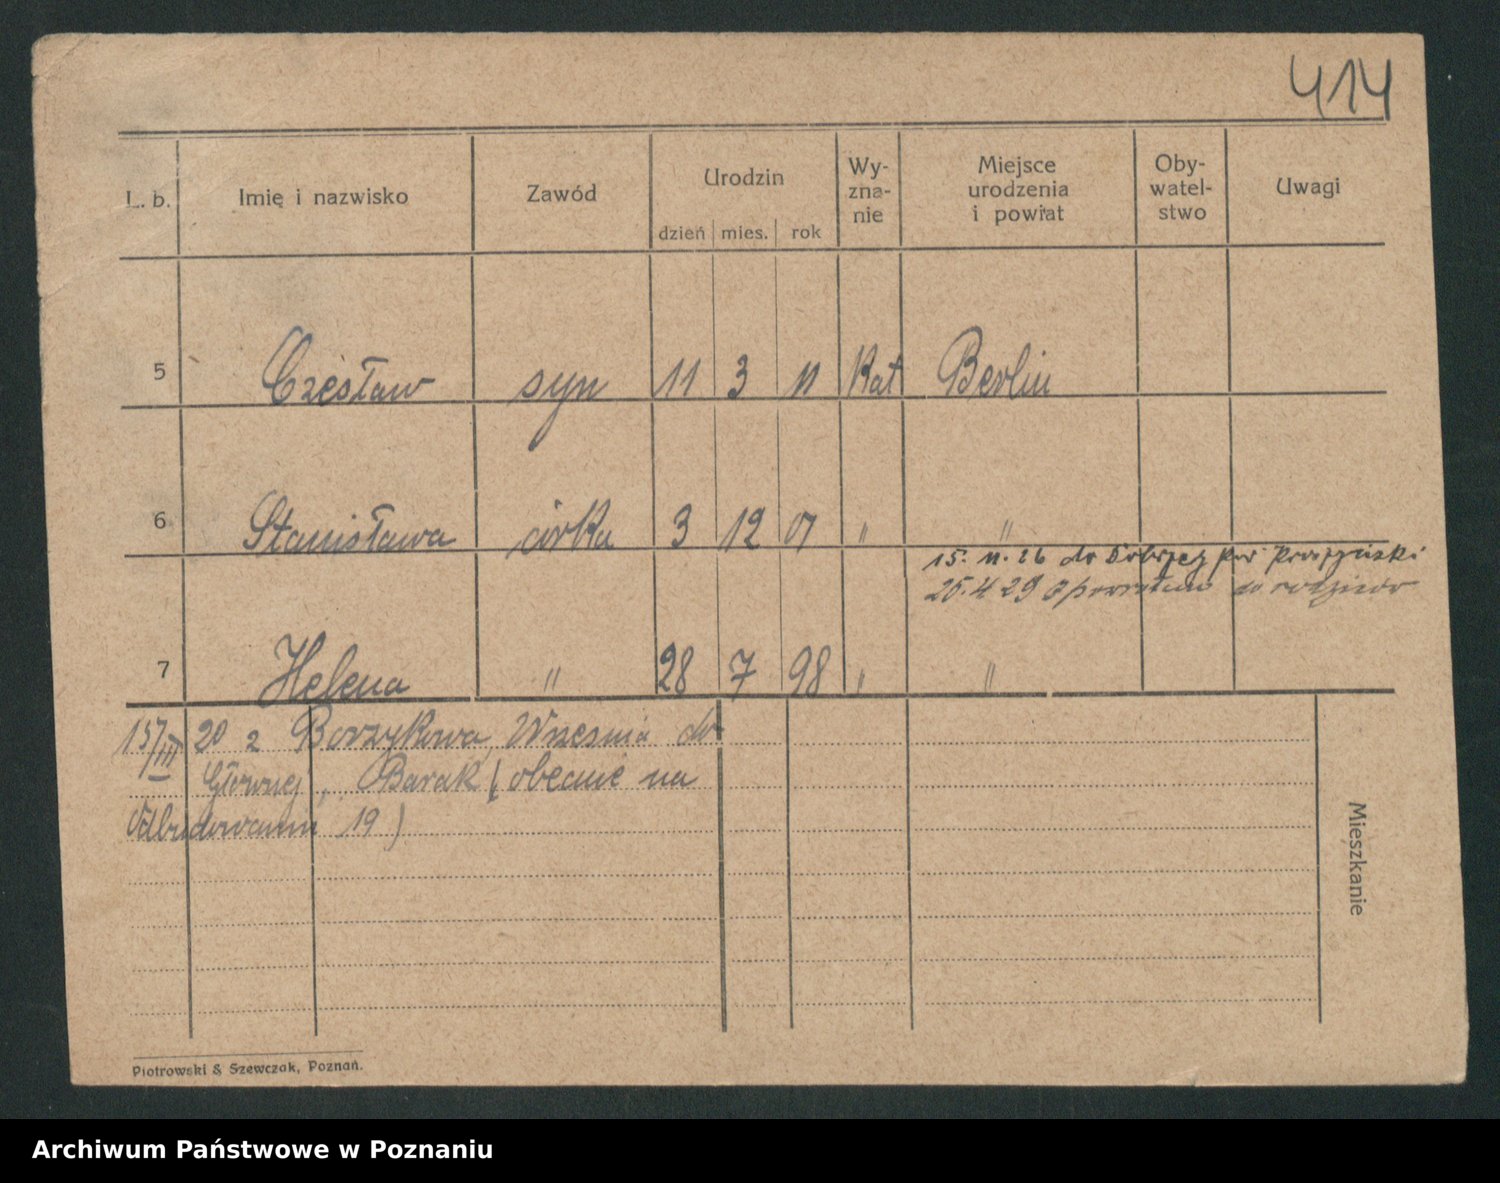 414
L. b. Imię i nazwisko Zawód Urodzin Wy-zna-nie Miejsce urodzenia i powiat Oby-watel-stwo Uwagi
dzień mies. rok
5 Czesław syn 11 3 11 Kat Berlin
6 Stanisława córka 3 12 07 " "
15. 11. 26 do
25. 4 29 z powrotem do rodziców
7 Helena " 28 7 98 " "
15/III 20 z Borzykowa, Wrzesnia do
Głównej, Barak (obecnie na
Odbudowaniu 19)
Mieszkanie
Piotrowski & Szewczak, Poznań.
Archiwum Państwowe w Poznaniu